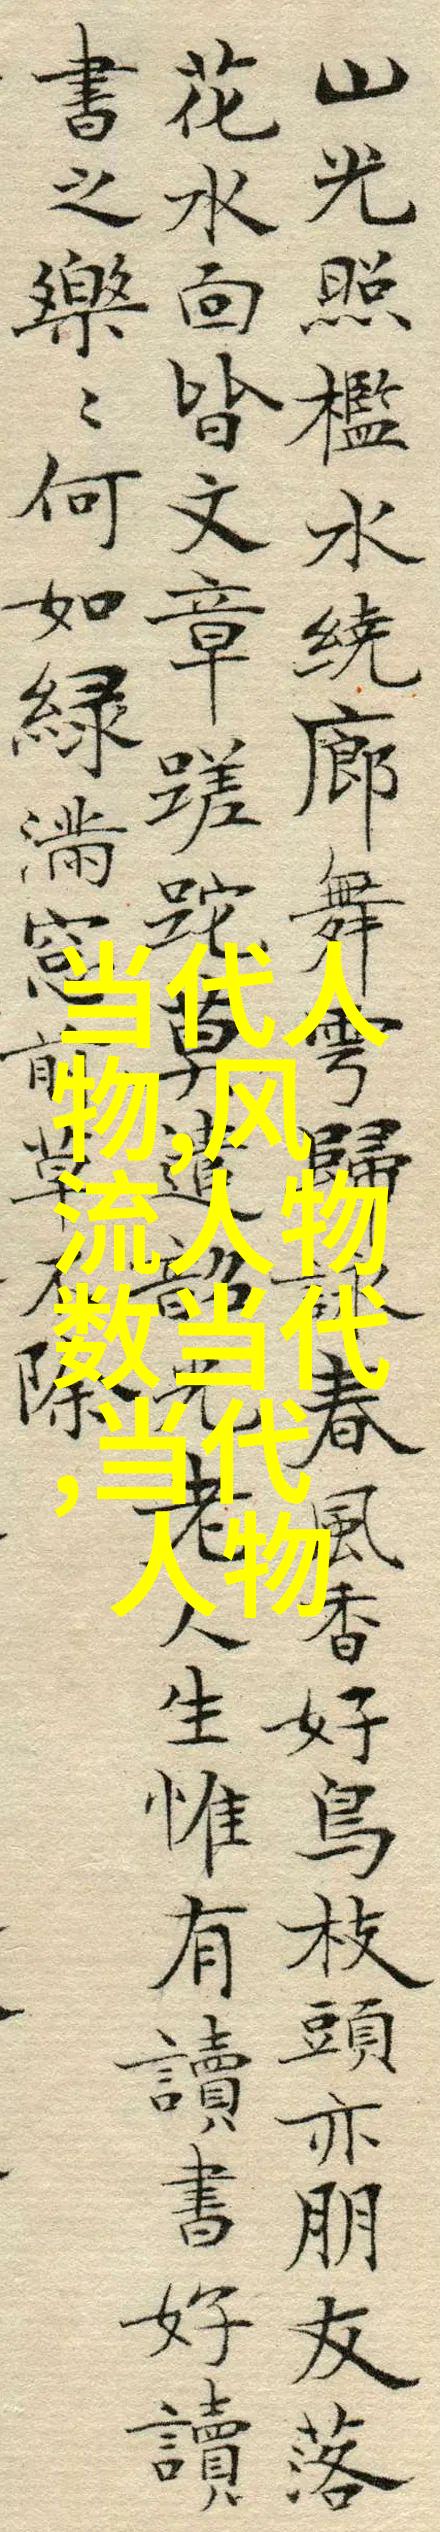 山光照檻水繞廊舞雩歸詠春風香好鳥枝頭亦朋友落
花水面皆文章蹉跎莫遣韶光老人生惟有讀書好讀
書之樂〻何如綠滿窓前草不除
当代人
物,风
流人物
数当代
,当代
人物